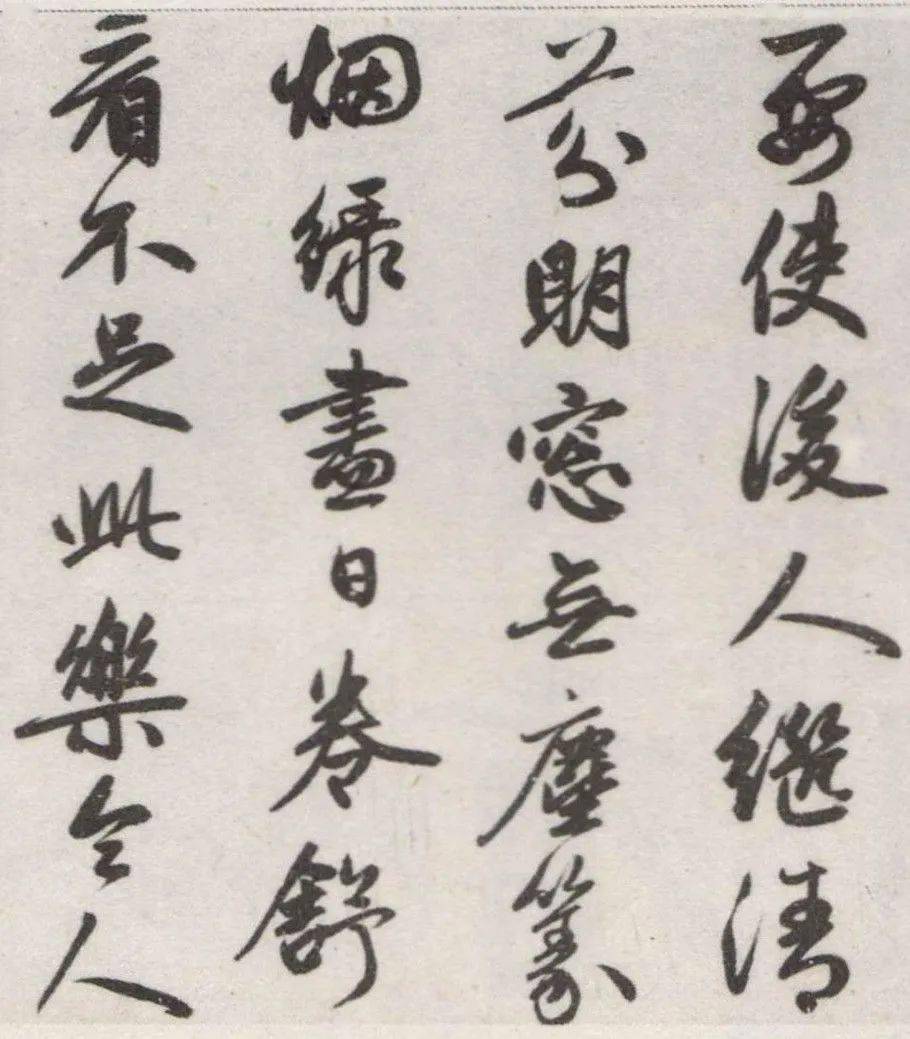 要使後人繼清
芬明窓無塵篆
烟緑盡日卷舒
看不足此樂令人